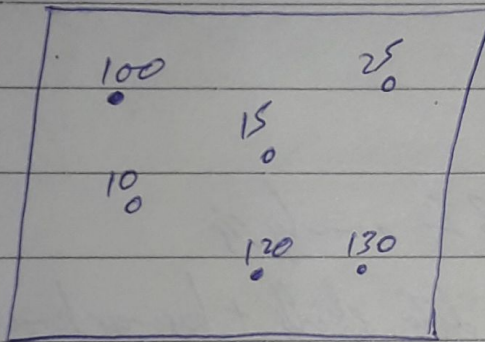 100
25
15
10
120
130